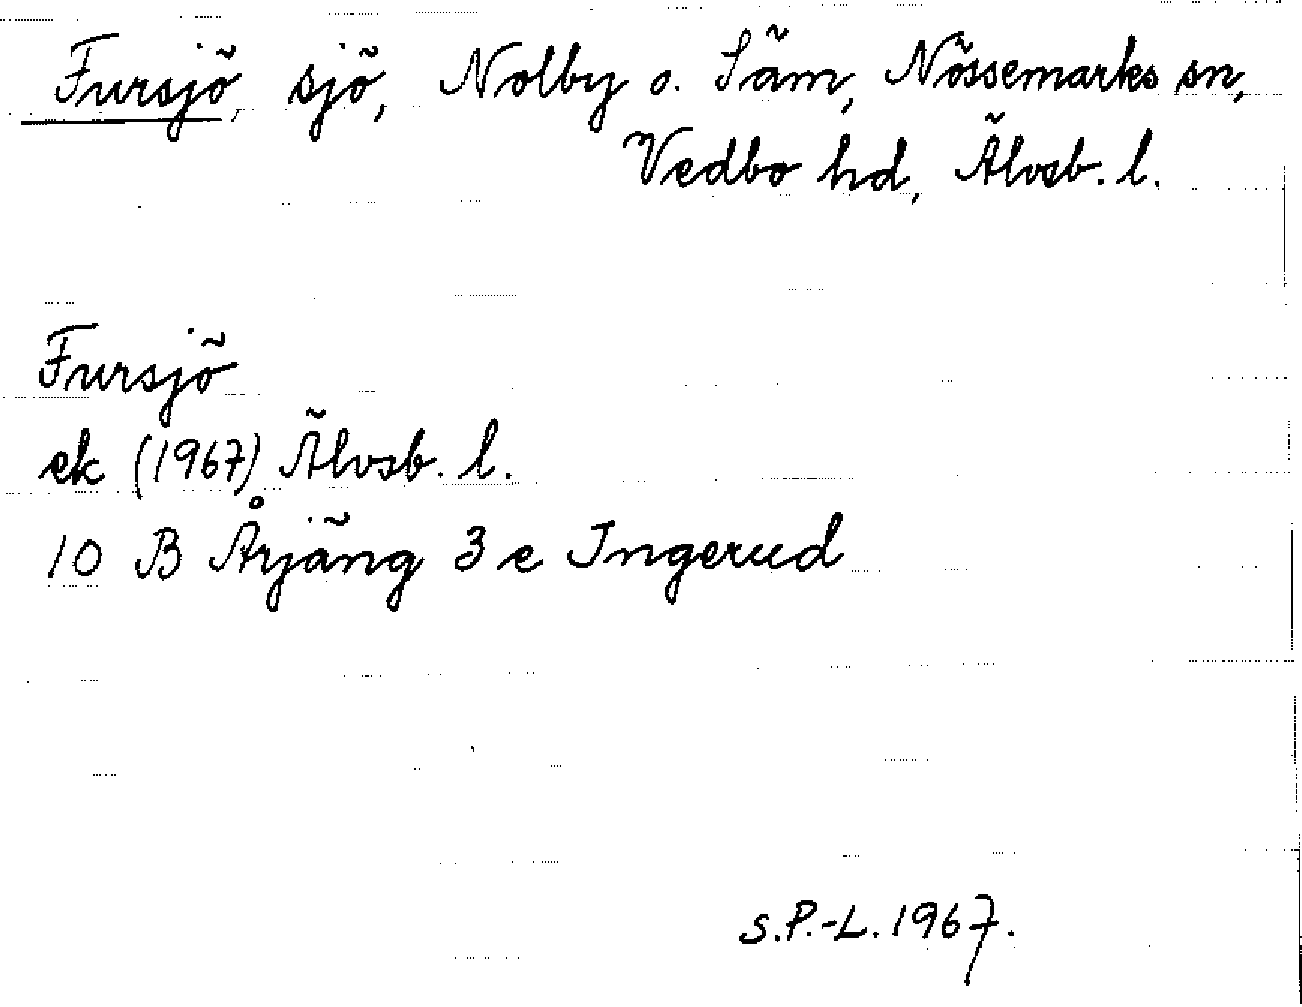 Fursjö, sjö, Nolby o. Säm, Nössemarks sn,
Vedbo hd, Älvsb. l.
Fursjö
ek (1967) Älvsb. l.
10 B Årjäng 3 e Ingerud
S.P.-L. 1967.